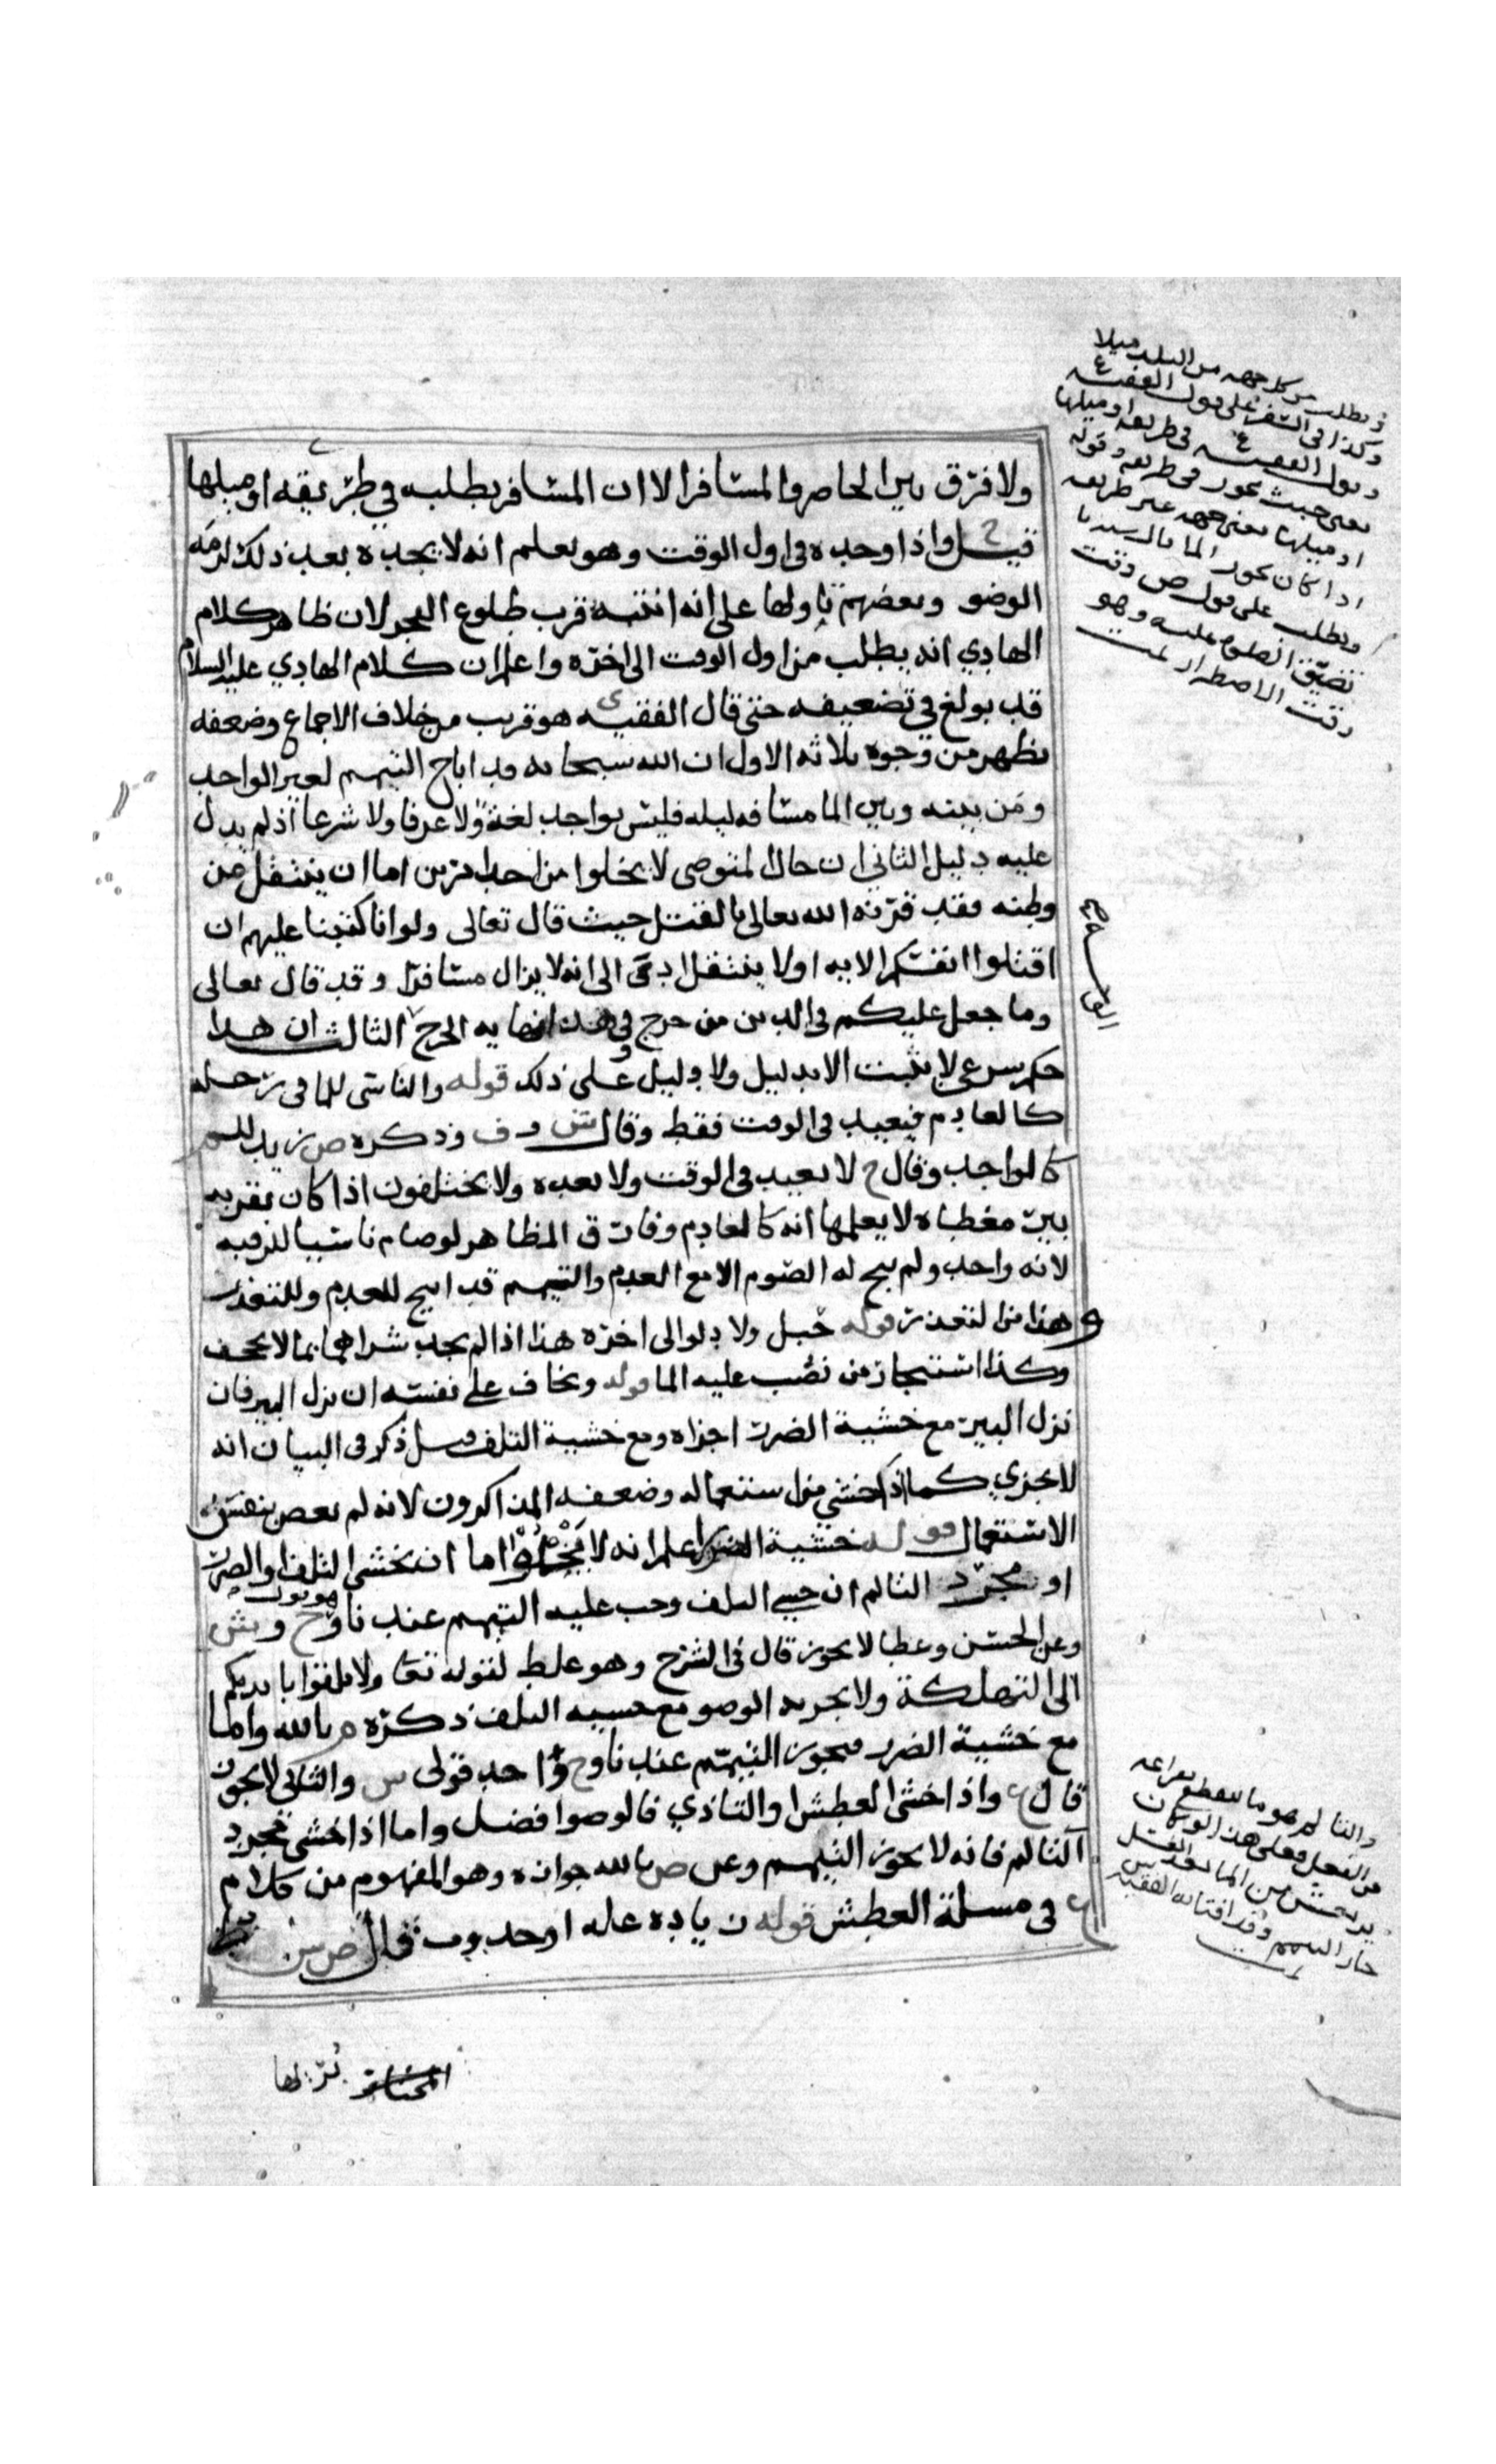 ولا فرق بين الحاضر والمسافر الا ان المسافر يطلبه في طريقه او ميلها
قيل ح واذا وجده في اول الوقت وهو يعلم انه لا يجده بعد ذلك لزمه
الوضو وبعضهم تاولها على انه انتبه قرب طلوع الفجر لان ظاهر كلام
الهادي انه يطلب من اول الوقت الى اخره واعلم ان كلام الهادي عليه السلام
قد بولغ في تضعيفه حتى قال الفقيه ى هو قريب من خلاف الاجماع وضعفه
يظهر من وجوه ثلاثه الاول ان الله سبحانه قد اباح التيمم لغير الواجد
ومن بينه وبين الما مسافه ليله فليس بواجد لغة ولا عرفا ولا شرعا اذ لم يدل
عليه دليل الثاني ان حال المتوضي لا يخلوا من احد امرين اما ان ينتقل من
وطنه فقد قرنه الله تعالى بالقتل حيث قال تعالى ولو انا كتبنا عليهم ان
اقتلوا انفسكم الايه او لا ينتقل ادى الى انه لا يزال مسافرا وقد قال تعالى
وما جعل عليكم في الدين من حرج وفي هذا نهايه الحرج الثالث ان هذا
حكم شرعي لا يثبت الا بدليل ولا دليل على ذلك قوله والناسي للما في رحله
كالعادم فيعيد في الوقت فقط وقال ش و ف وذكره ص زيد للم
كالواجد وقال ح لا يعيد في الوقت ولا بعده ولا يختلفون اذا كان بقربه
بير مغطاه لا يعلمها انه كالعادم وفارق المظاهر لو صام ناسيا للرقبه
لانه واجد ولم يبح له الصوم الا مع العدم والتيمم قد ابيح للعدم وللتعذر
وهذا من التعذر قوله حبل ولا دلو الى اخره هذا اذا لم يجد شراهما بما لا يجحف
وكذا استيجار من يصب عليه الما قوله ويخاف على نفسه ان نزل البير فان
نزل البير مع خشية الضرر اجزاه ومع خشية التلف قيل ذكر في البيان انه
لا يجزي كما اذا خشي من استعماله وضعفه المذاكرون لانه لم يعص بنفس
الاستعمال قوله خشية الضرر اعلم انه لا يخلوا اما ان يخشى التلف او الضرر
او مجرد التالم ان خشي التلف وجب عليه التيمم عندنا وهو قول ح وش
وعن الحسن وعطا لا يجوز قال في الشرح وهو غلط لقوله تعا ولا تلقوا بايديكم
الى التهلكة ولا يجزيه الوضو مع خشيه التلف ذكره م بالله واما
مع خشية الضرر فيجوز التيمم عندنا وح واحد قولى ش والثاني لا يجوز
قال ع واذا خشى العطش والتاذي فالوضوا فضل واما اذا خشى مجرد
التالم فانه لا يجوز التيمم وعن ص بالله جوازه وهو المفهوم من كلام
ع في مسلة العطش قوله زياده عله او حدوث قال ص ش
نزلها
يطلب من كل جهه من البلد ميلا
وكذا في السفر على قول الفقيه ع
وقول الفقيه ع في طريقه او ميلها
يعني حيث يجوز في طريقه وقوله
او ميلها يعني جهه غير طريقه
اذا كان يجوز الما
ويطلب على قول ص وقت
تضيق الصلوه عليه وهو
وقت الاضطرار
والتالم هو ما ينقطع بفراغه
من الفعل فعلى هذا لو كان
جاز التيمم وقد افتا به الفقيه